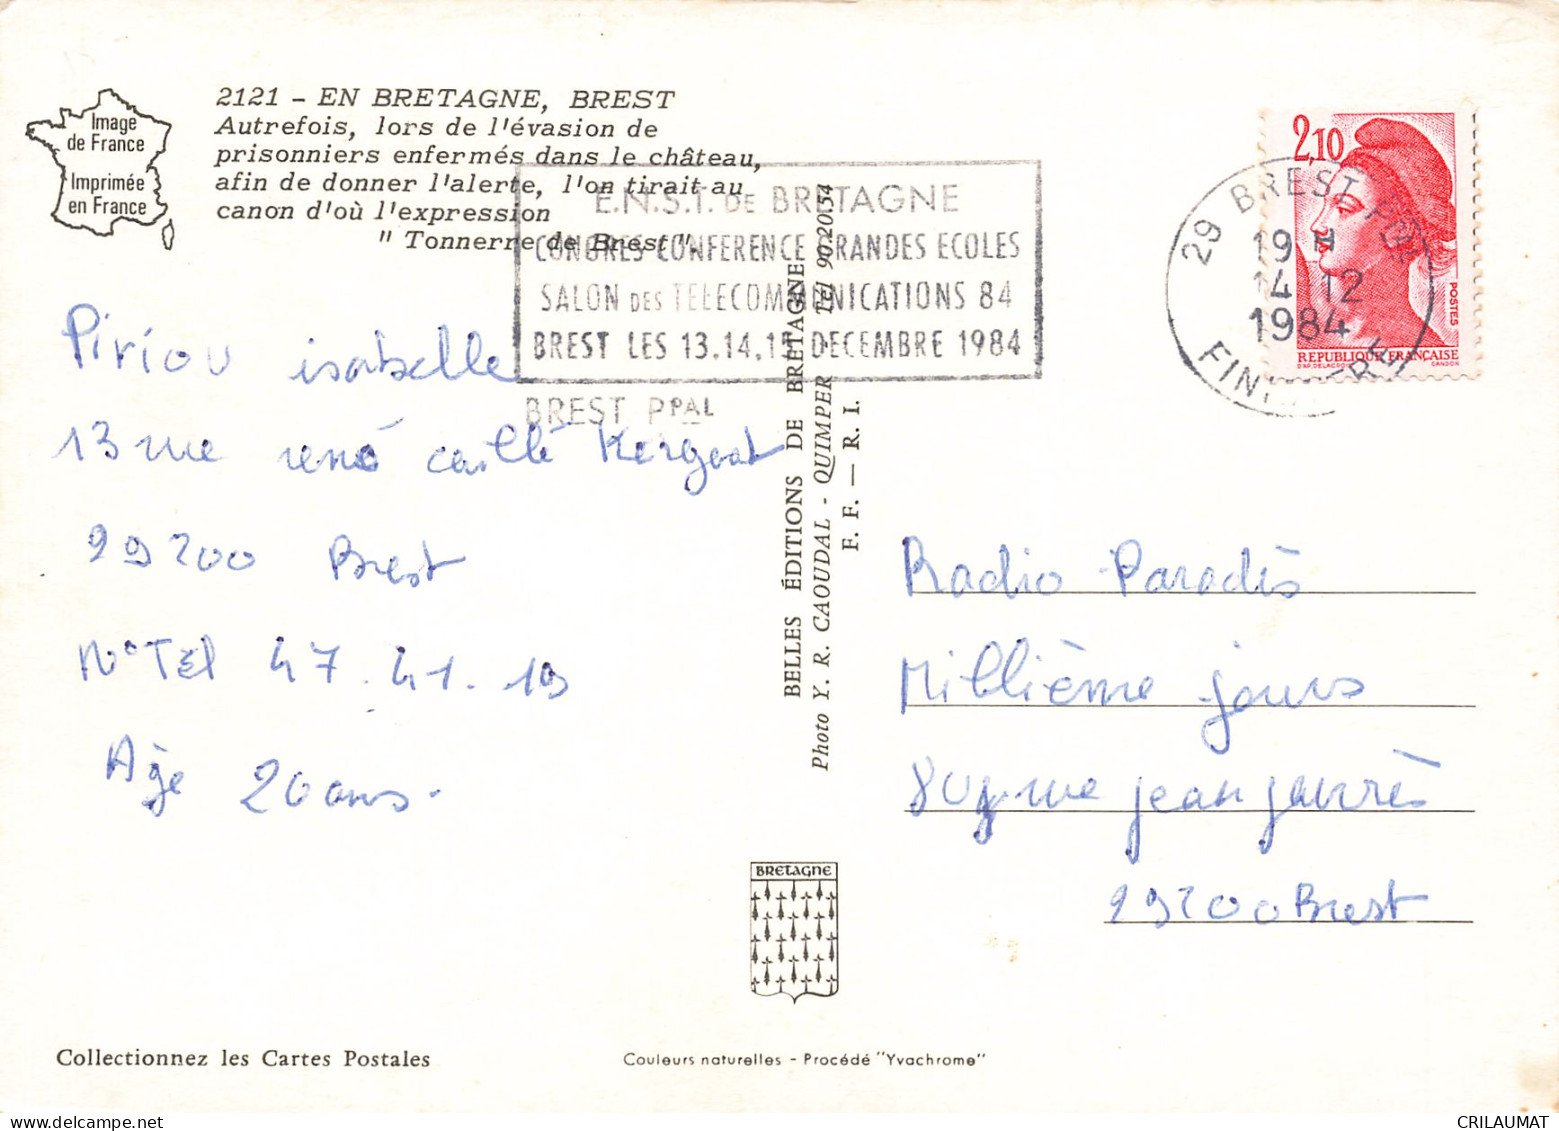 Image
de France
Imprimée
en France
2121 - EN BRETAGNE, BREST
Autrefois, lors de l'évasion de
prisonniers enfermés dans le château,
afin de donner l'alerte, l'on tirait au
canon d'où l'expression
" Tonnerre de Brest ".
E.N.S.T. DE BRETAGNE
CONGRES CONFERENCE GRANDES ECOLES
SALON DES TELECOMMUNICATIONS 84
BREST LES 13.14.15 DECEMBRE 1984
BREST PPAL
2,10
POSTES
REPUBLIQUE FRANÇAISE
29 BREST PPAL
19 H
14 12
1984
FINISTERE
Piriou isabelle
13 rue rené caillé Kergoat
29200 Brest
N° Tél 47.41.19
Age 20 ans.
BELLES ÉDITIONS DE BRETAGNE
Photo Y. R. CAOUDAL - QUIMPER - Tél 90.20.54
F. F. — R. I.
Radio Paradis
Millième jours
80 rue jean jaurès
29200 Brest
BRETAGNE
Collectionnez les Cartes Postales
Couleurs naturelles - Procédé "Yvachrome"
CRILAUMAT